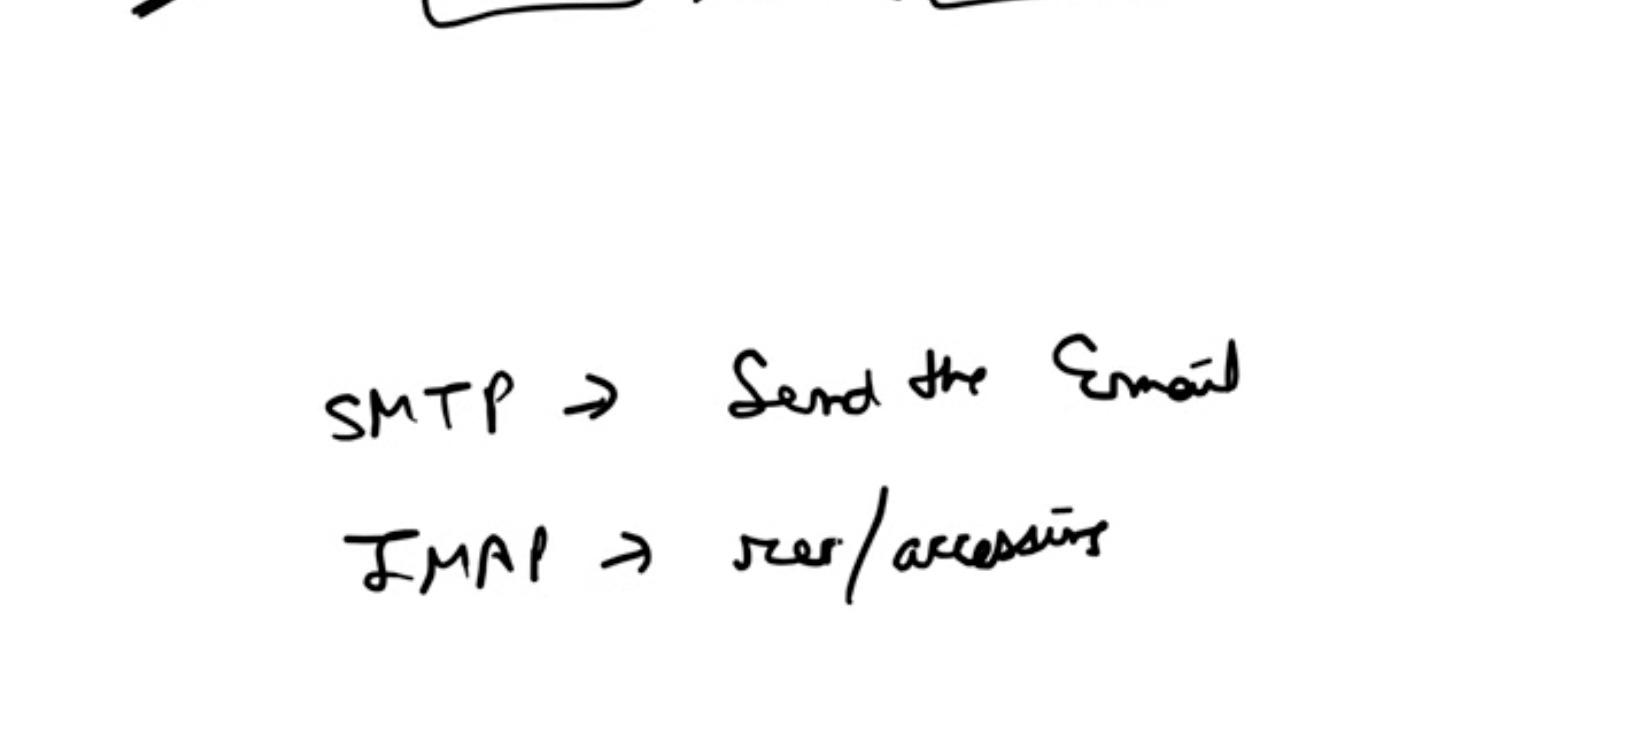 SMTP → Send the Email
IMAP → rcer/accessing